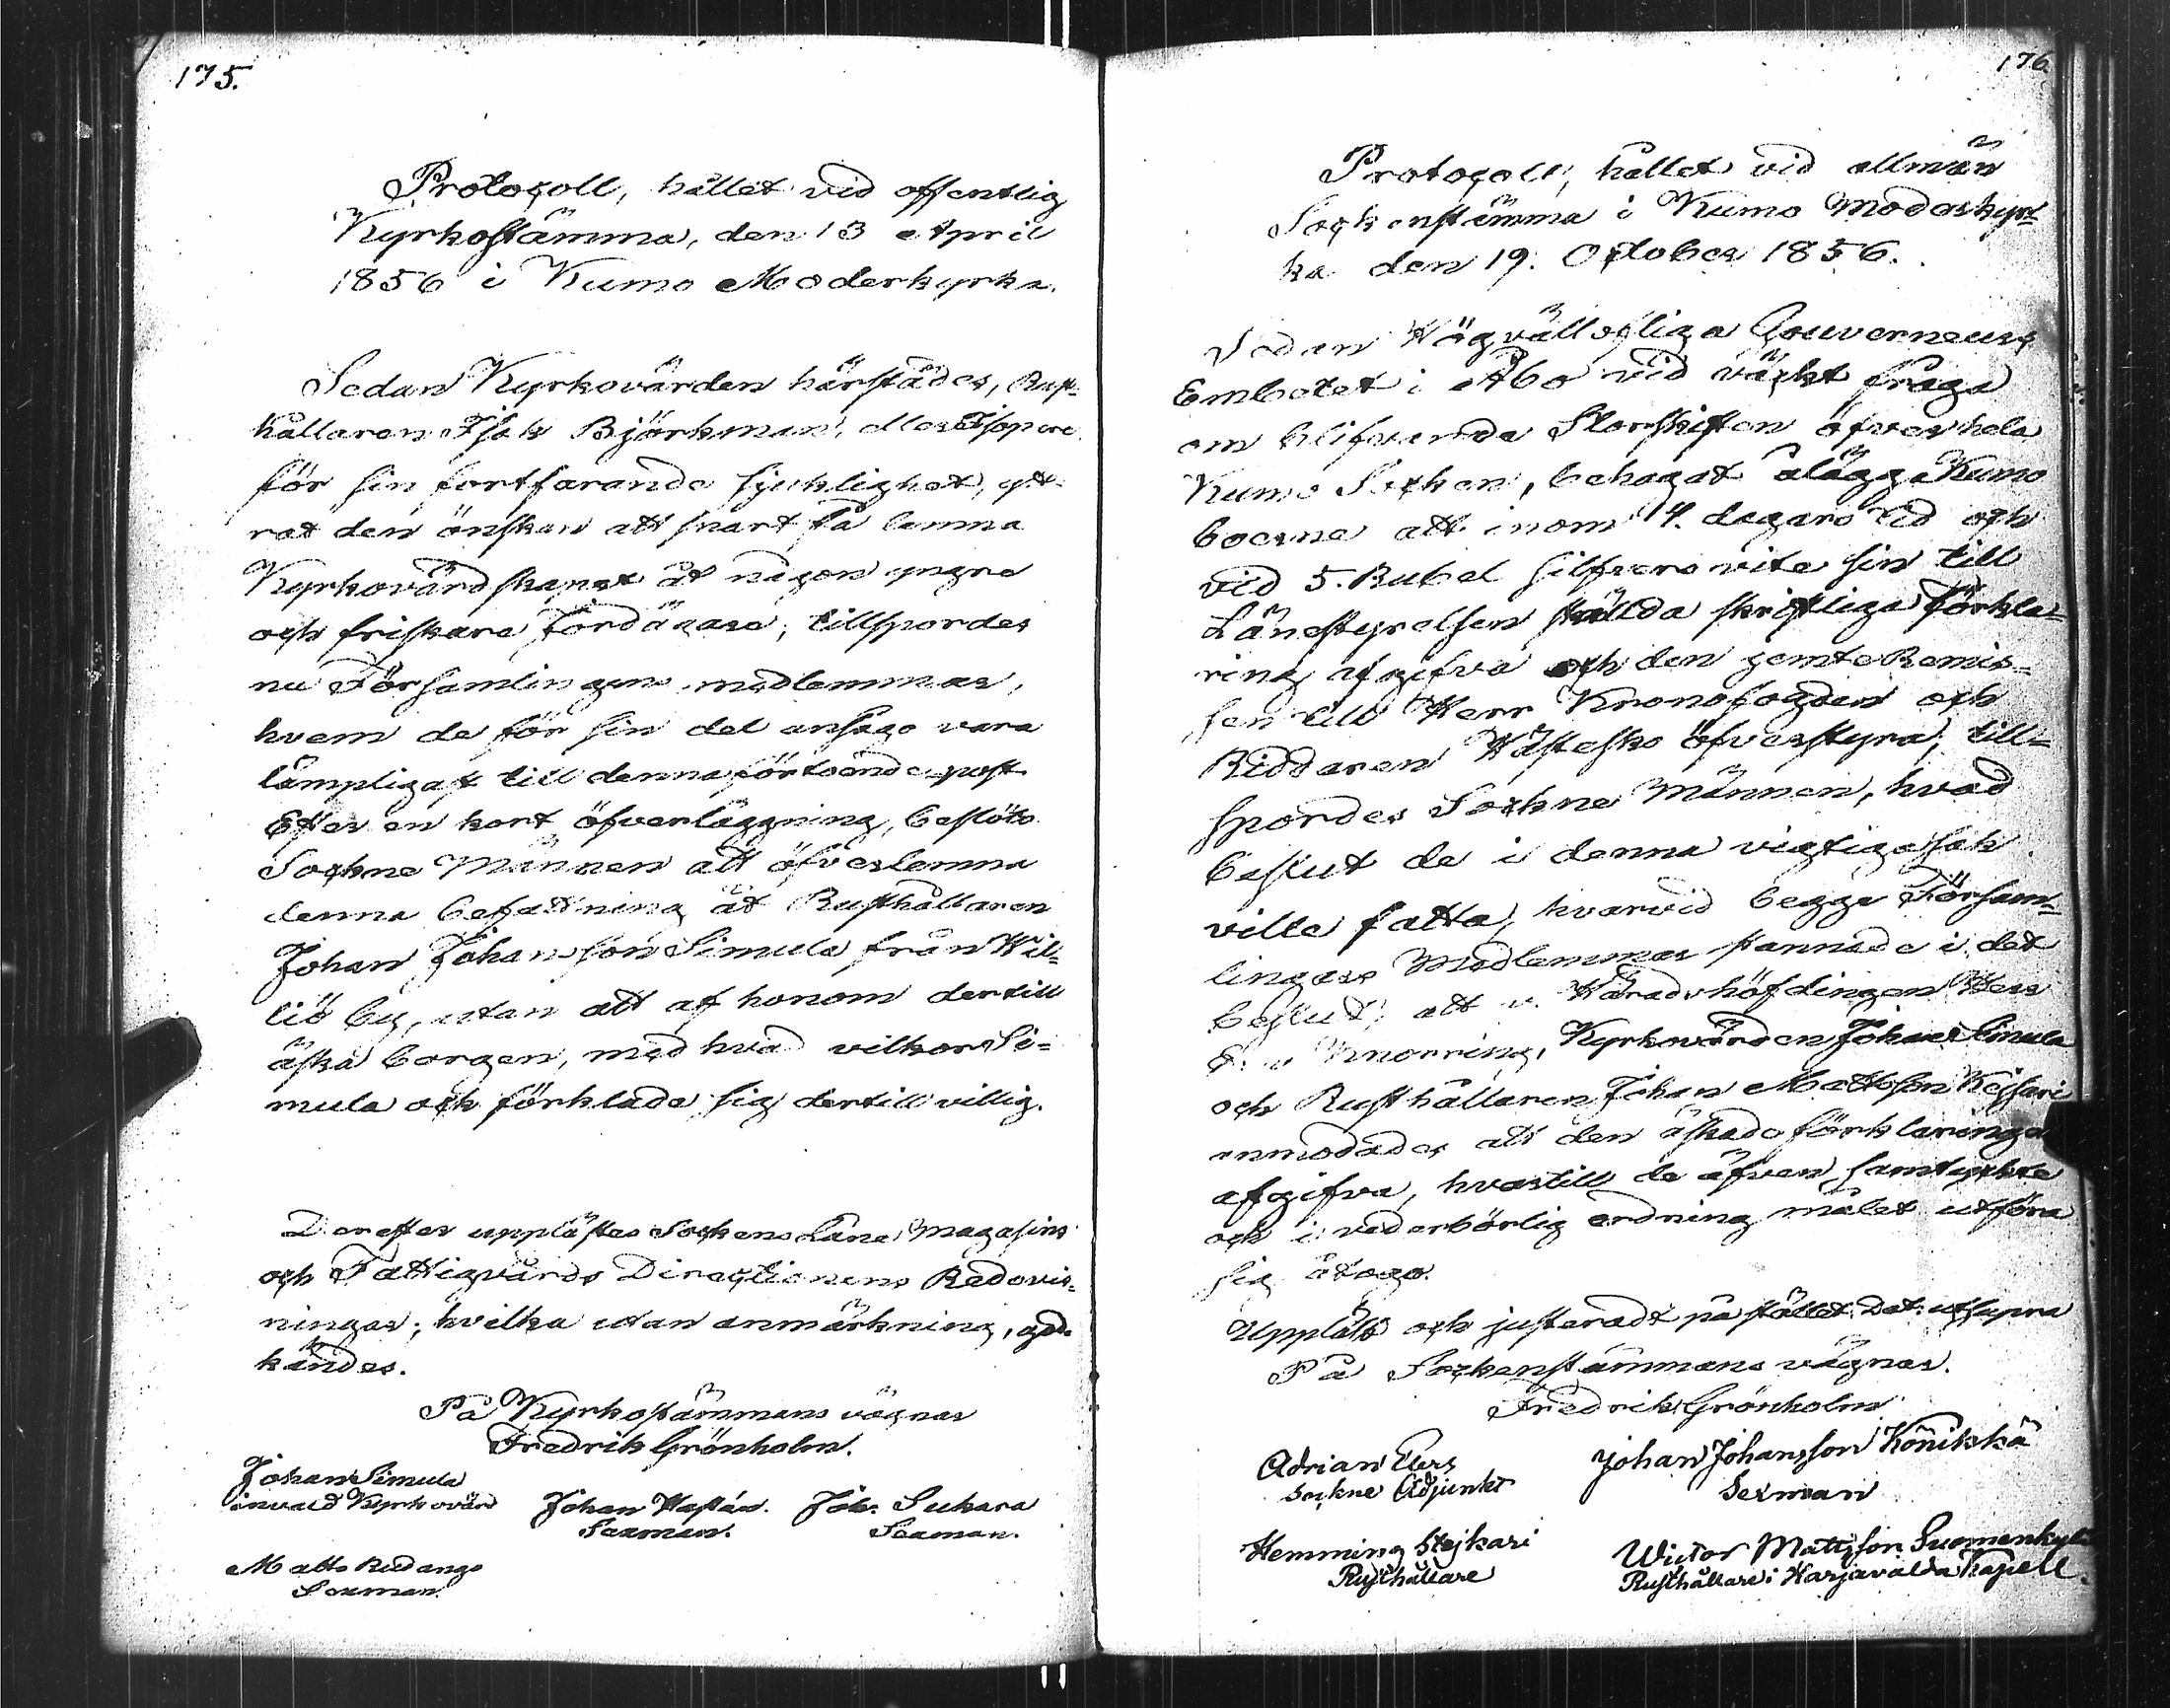 175.
Protocoll, hållet vid offentlig
Kyrkostämma, den 13 April
1856 i Kumo Moderkyrka.
Sedan Kyrkovärden härstädes, Rust-
hållaren Isak Björkman, eller
för sin fortfarande sjuklighet, ytt-
rat den önskan att snart få lemna
Kyrkovärdskapet åt någon yngre
och friskare jordägare; tillspordes
nu Församlingens medlemmar,
hvem de för sin del ansågo vara
lämpligast till denna förtroende post.
Efter en kort öfverläggning, beslöto
Sockne Männen att öfverlemna
denna befattning åt Rusthållaren
Johan Johansson Simula från Wil-
liö by, utan att af honom dertill
äska borgen, med hvad vilkor Si-
mula och förklade sig dertill villig.
Derefter upplästes Sockens Låne Magasins
och Fattigvårds Directionens Redovis-
ningar; hvilka utan anmärkning, god-
kändes.
På Kyrkostämmans vägnar
Fredrik Grönholm.
Johan Simula
invald Kyrkovärd
Johan Hastén. Joh. Sukara
Sexman. Sexman.
Matts Rudango
Sexman.
176
Protocoll, hållet vid allmän
Sockenstämma i Kumo Moderkyr-
ka den 19. October 1856.
Sedan Högvällofliga Gouverneurs
Embetet i Åbo vid väckt fråga
om blifvande Storskiften öfver hela
Kumo Socken, behagat ålägga Kumo
boerne att inom 14. dagars tid och
vid 5. Rubel silfvers vite sin till
Länestyrelsen ställda skriftliga förkla-
ring afgifva och den jemte Remis-
sen till Herr Kronofogden och
Riddaren Hästesko öfverstyra; till-
spordes Sockne Männen, hvad
beslut de i denna vigtiga sak
ville fatta, hvarvid begge Försam-
lingars Medlemmar stannade i det
beslut, att v. Häradshöfdingen Herr
v Knorring, Kyrkvärden Johan Simula
och Rusthållaren Johan Mattsson Keisari
anmodades att den äskade förklaringen
afgifva, hvartill de äfven samtyckte
och i vederbörlig ordning målet utföra
sig åtogo.
Uppläst och justeradt på stället. Dat. utsupra
På Sockenstämmans vägnar.
Fredrik Grönholm
Adrian Elers Johan Johansson Könikkä
Sockne Adjunkt Sexman
Hemming Stejkari Wictor Mattsson Suomenkylä
Rusthållare Rusthållare i Harjavalda Kapell.